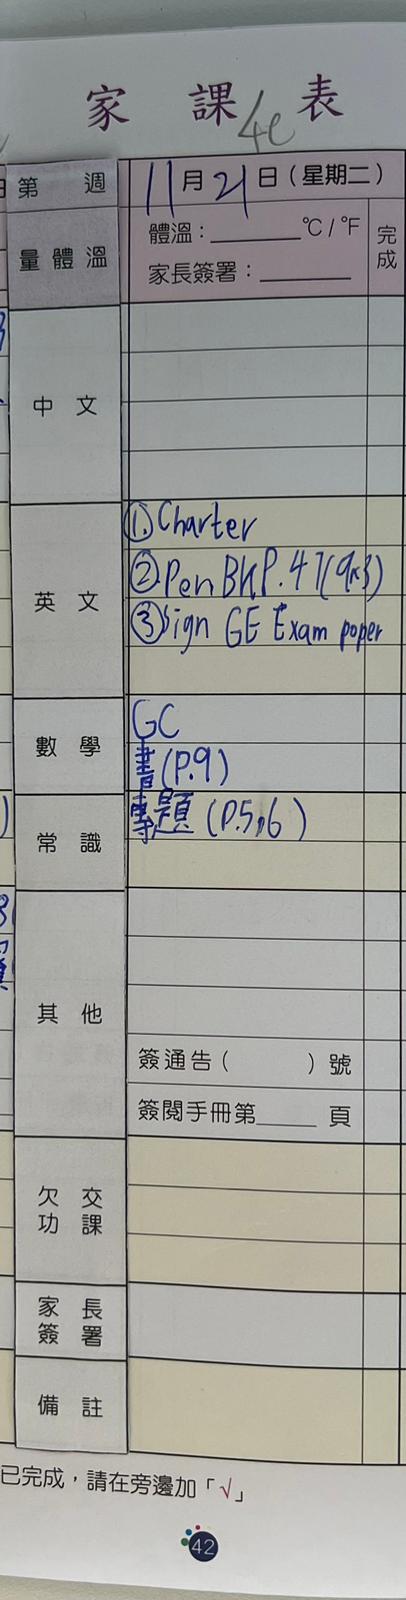 家 課 表
4e
第 週
11月21日(星期二)
量體溫
體溫：______℃/℉
家長簽署：______
完成
中 文
英 文
①. Charter
②. Pen BK P.47(9x3)
③ Sign GE Exam paper
數 學
GC
書(P.9)
常 識
專題 (P.5,6)
其 他
簽通告( )號
簽閱手冊第____頁
欠 交
功 課
家 長
簽 署
備 註
已完成，請在旁邊加「√」
42